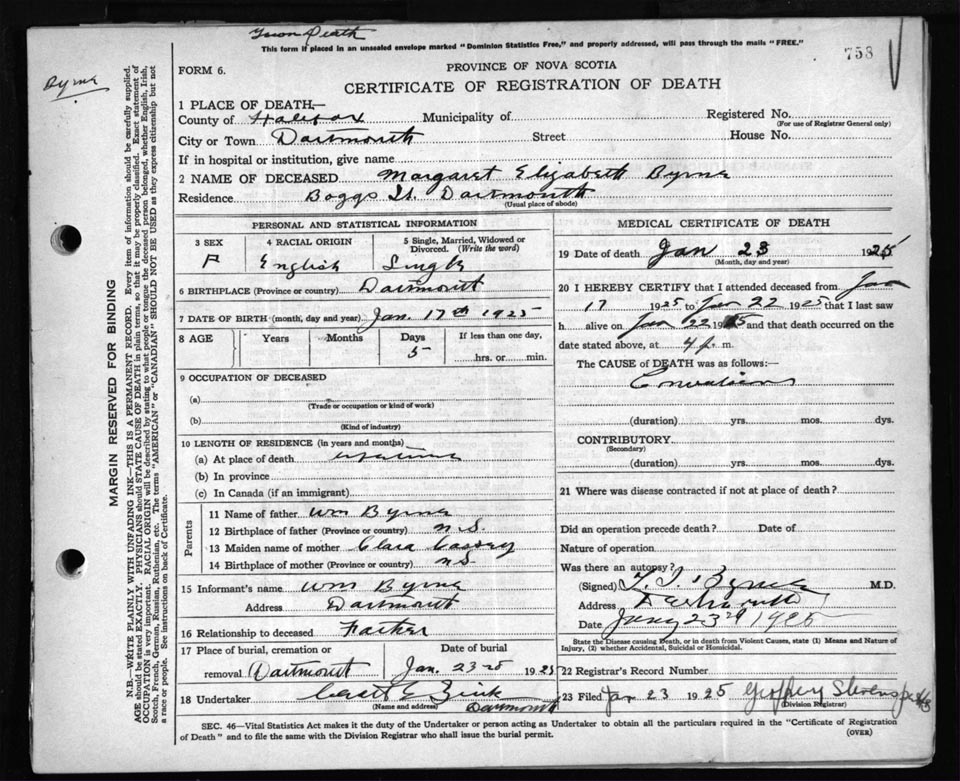 Death
This form if placed in an unsealed envelope marked "Dominion Statistics Free," and properly addressed, will pass through the mails "FREE."
758
Byrne
FORM 6.
PROVINCE OF NOVA SCOTIA
CERTIFICATE OF REGISTRATION OF DEATH
1 PLACE OF DEATH,—
County of Halifax Municipality of Registered No.
(For use of Registrar General only)
City or Town Dartmouth Street House No.
If in hospital or institution, give name
2 NAME OF DECEASED Margaret Elizabeth Byrne
Residence Boggs St. Dartmouth
(Usual place of abode)
MARGIN RESERVED FOR BINDING
N.B.—WRITE PLAINLY WITH UNFADING INK—THIS IS A PERMANENT RECORD. Every item of information should be carefully supplied.
AGE should be stated EXACTLY. PHYSICIANS should STATE CAUSE OF DEATH in plain terms, so that it may be properly classified. Exact statement of
OCCUPATION is very important. RACIAL ORIGIN will be described by stating to what people or tongue the deceased person belonged, whether English, Irish,
Scotch, French, German, Russian, Ruthenian, etc. The terms "AMERICAN" or "CANADIAN" SHOULD NOT BE USED as they express citizenship but not
a race or people. See instructions on back of Certificate.
PERSONAL AND STATISTICAL INFORMATION
3 SEX 4 RACIAL ORIGIN 5 Single, Married, Widowed or
Divorced. (Write the word)
F English Single
6 BIRTHPLACE (Province or country) Dartmouth
7 DATE OF BIRTH (month, day and year) Jan. 17th 1925
8 AGE Years Months Days If less than one day,
5 hrs. or min.
9 OCCUPATION OF DECEASED
(a)
(Trade or occupation or kind of work)
(b)
(Kind of industry)
10 LENGTH OF RESIDENCE (in years and months)
(a) At place of death
(b) In province
(c) In Canada (if an immigrant)
Parents
11 Name of father Wm Byrne
12 Birthplace of father (Province or country) N.S.
13 Maiden name of mother Clara
14 Birthplace of mother (Province or country) N.S.
15 Informant's name Wm Byrne
Address Dartmouth
16 Relationship to deceased Father
17 Place of burial, cremation or Date of burial
removal Dartmouth Jan. 23rd 1925
18 Undertaker Zink
(Name and address) Dartmouth
MEDICAL CERTIFICATE OF DEATH
19 Date of death Jan 23 1925
(Month, day and year)
20 I HEREBY CERTIFY that I attended deceased from Jan
17 1925 to Jan 22 1925 that I last saw
h alive on Jan 22 1925 and that death occurred on
date stated above, at 4 p. m.
The CAUSE of DEATH was as follows:
Convulsions
(duration) yrs. mos. dys.
CONTRIBUTORY
(Secondary)
(duration) yrs. mos. dys.
21 Where was disease contracted if not at place of death?
Did an operation precede death? Date of
Nature of operation
Was there an autopsy?
(Signed) Byrne M.D.
Address Dartmouth
Date Jany 23rd 1925
State the Disease causing Death, or in death from Violent Causes, state (1) Means and Nature of
Injury, (2) whether Accidental, Suicidal or Homicidal.
22 Registrar's Record Number
23 Filed Jan 23 1925 Geoffrey Stevens
(Division Registrar)
SEC. 46—Vital Statistics Act makes it the duty of the Undertaker or person acting as Undertaker to obtain all the particulars required in the "Certificate of Registration
of Death" and to file the same with the Division Registrar who shall issue the burial permit.
(OVER)